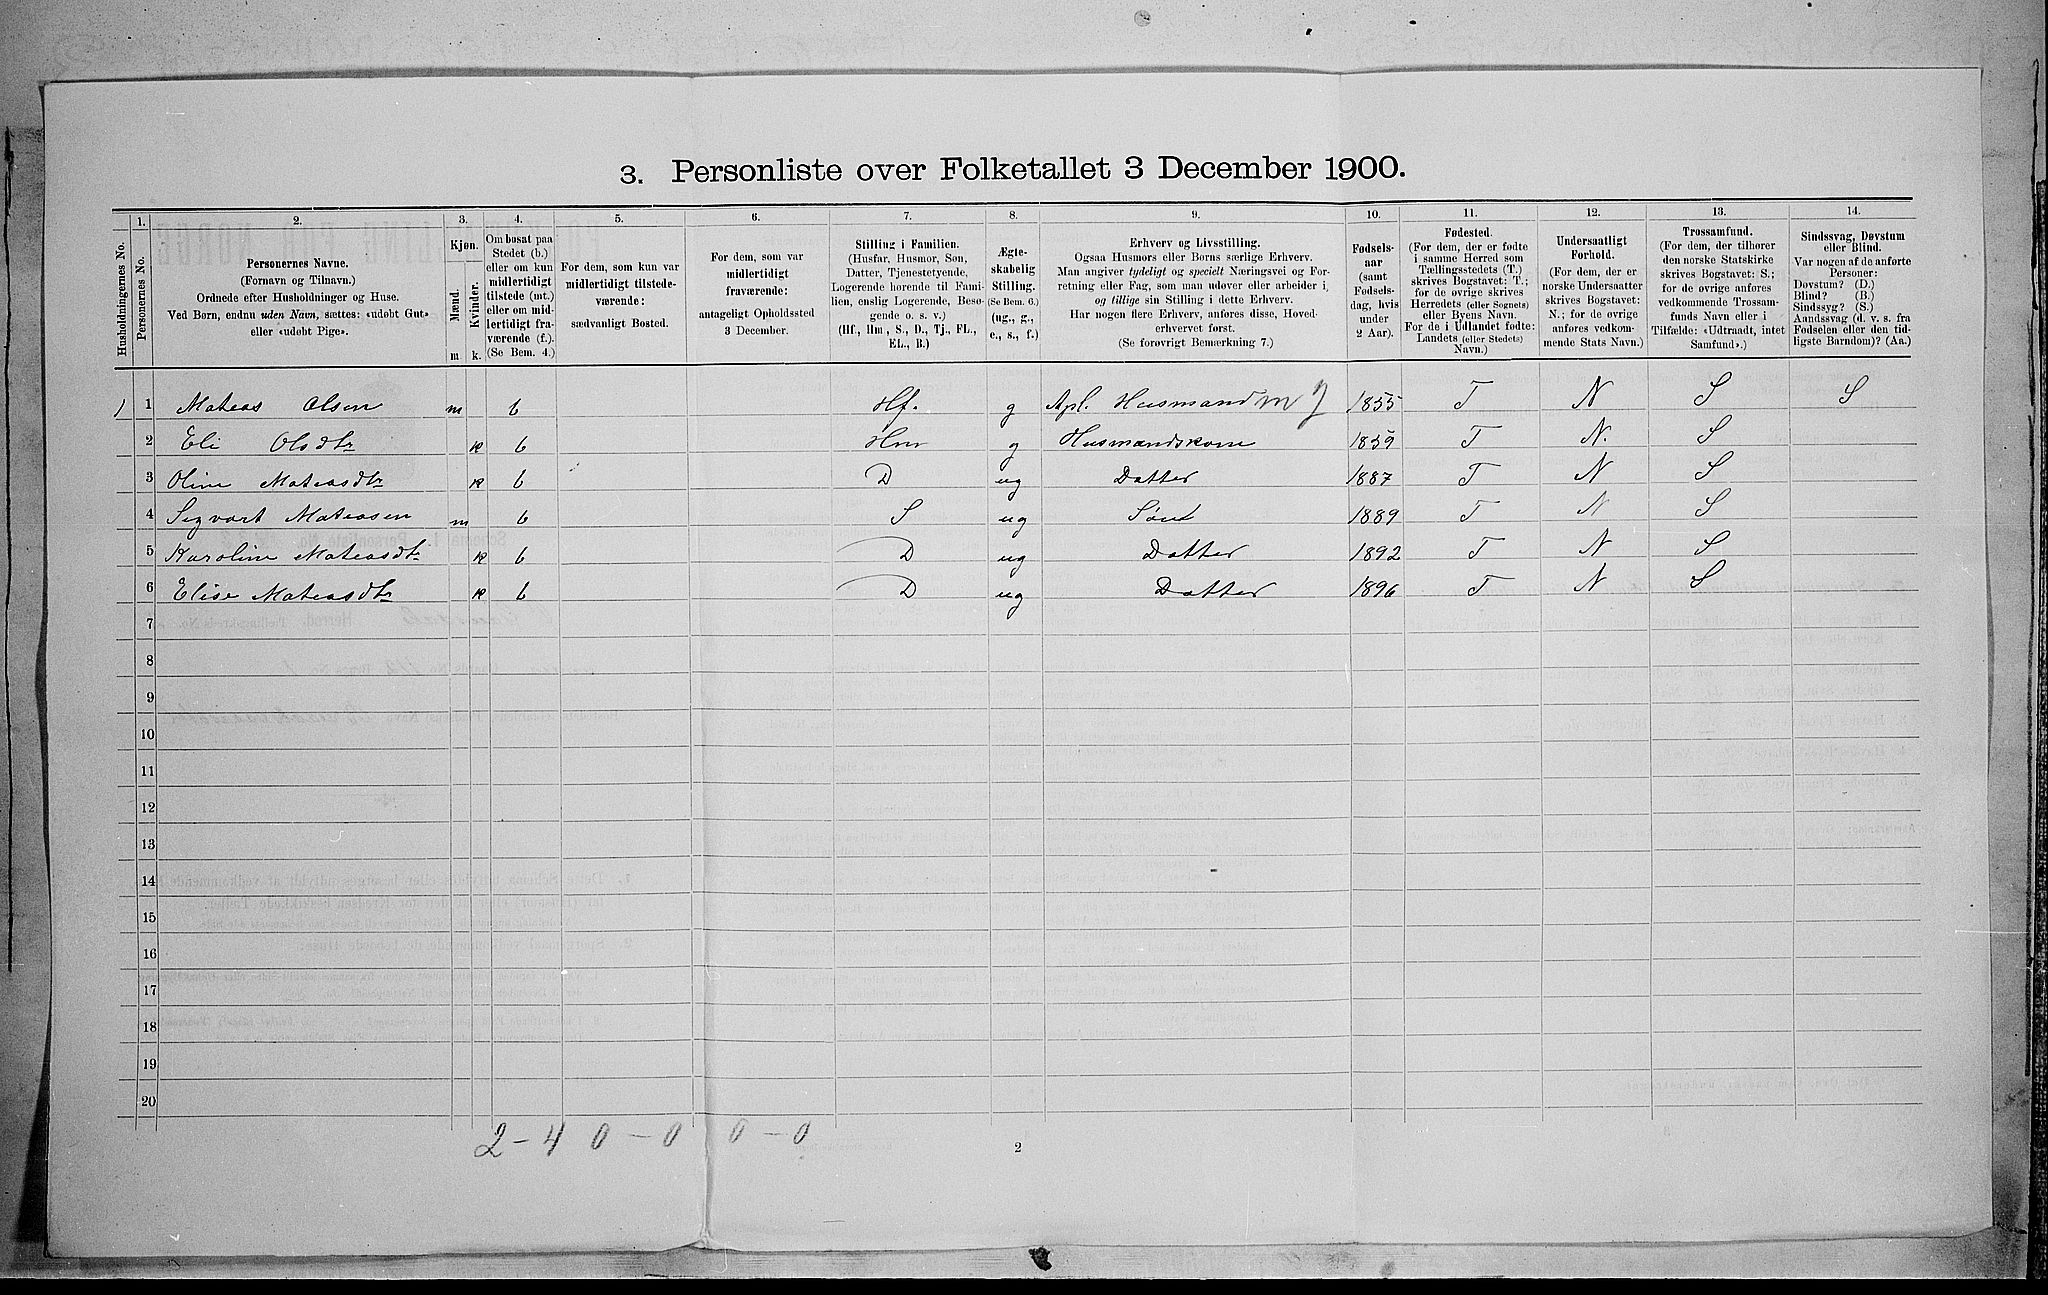 3. Personliste over Folketallet 3 December 1900.
Husholdningernes No.
1. Personernes No.
2. Personernes Navne.
(Fornavn og Tilnavn.)
Ordnede efter Husholdninger og Huse.
Ved Børn, endnu uden Navn, sættes: «udøbt Gut»
eller «udøbt Pige».
3. Kjøn.
Mænd. m
Kvinder. k.
4. Om bosat paa
Stedet (b.)
eller om kun
midlertidigt
tilstede (mt.)
eller om mid-
lertidigt fra-
værende (f.).
(Se Bem. 4.)
5. For dem, som kun var
midlertidigt tilstede-
værende:
sædvanligt Bosted.
6. For dem, som var
midlertidigt
fraværende:
antageligt Opholdssted
3 December.
7. Stilling i Familien.
(Husfar, Husmor, Søn,
Datter, Tjenestetyende,
Logerende hørende til Fami-
lien, enslig Logerende, Besø-
gende o. s. v.)
(Hf., Hm., S., D., Tj., FL.,
EL., B.)
8. Ægte-
skabelig
Stilling.
(Se Bem. 6.)
(ug., g.,
e., s., f.)
9. Erhverv og Livsstilling.
Ogsaa Husmors eller Børns særlige Erhverv.
Man angiver tydeligt og specielt Næringsvei og For-
retning eller Fag, som man udøver eller arbeider i,
og tillige sin Stilling i dette Erhverv.
Har nogen flere Erhverv, anføres disse, Hoved-
erhvervet først.
(Se forøvrigt Bemærkning 7.)
10. Fødsels-
aar
(samt
Fødsels-
dag, hvis
under
2 Aar).
11. Fødested.
(For dem, der er fødte
i samme Herred som
Tællingsstedets (T.)
skrives Bogstavet: T.;
for de øvrige skrives
Herredets (eller Sognets)
eller Byens Navn.
For de i Udlandet fødte:
Landets (eller Stedets)
Navn.)
12. Undersaatligt
Forhold.
(For dem, der er
norske Undersaatter
skrives Bogstavet:
N.; for de øvrige
anføres vedkom-
mende Stats Navn.)
13. Trossamfund.
(For dem, der tilhører
den norske Statskirke
skrives Bogstavet: S.;
for de øvrige anføres
vedkommende Trossam-
funds Navn eller i
Tilfælde: «Udtraadt, intet
Samfund».)
14. Sindssvag, Døvstum
eller Blind.
Var nogen af de anførte
Personer:
Døvstum? (D.)
Blind? (B.)
Sindssyg? (S.)
Aandssvag (d. v. s. fra
Fødselen eller den tid-
ligste Barndom)? (Aa.)
1 1 Mateas Olsen m b Hf. g Apl. Husmand m J 1855 T N S S
2 Eli Olsdtr k b Hm g Husmandskone 1859 T N. S
3 Oline Mateasdtr k b D ug Datter 1887 T N S
4 Sigvart Mateasen m b S ug Sønt 1889 T N S
5 Karoline Mateasdtr k b D ug Datter 1892 T N S
6 Elise Mateasdtr k b D ug Datter 1896 T N S
7
8
9
10
11
12
13
14
15
16
17
18
19
20
2-4 0-0 0-0
2